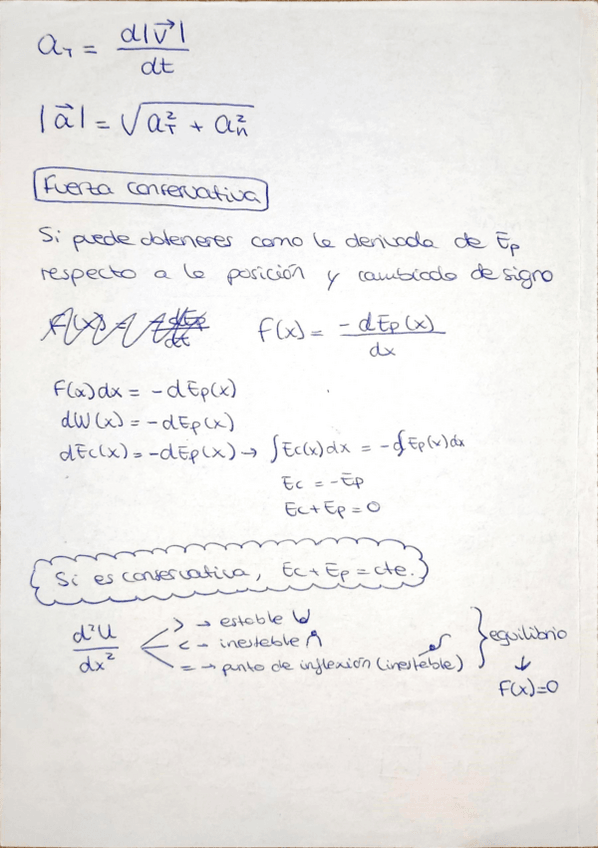 a_T = d|v⃗| / dt
|a⃗| = √(a_T² + a_n²)
Fuerza conservativa
Si puede obteneres como la derivada de Ep
respecto a la posición y cambiado de signo
F(x) = -dEp(x) / dx
F(x)dx = -dEp(x)
dW(x) = -dEp(x)
dEc(x) = -dEp(x) → ∫Ec(x)dx = -∫Ep(x)dx
Ec = -Ep
Ec + Ep = 0
Si es conservativa, Ec + Ep = cte.
d²U / dx²
> → estable
< → inestable
= → punto de inflexión (inestable)
} equilibrio
↓
F(x)=0